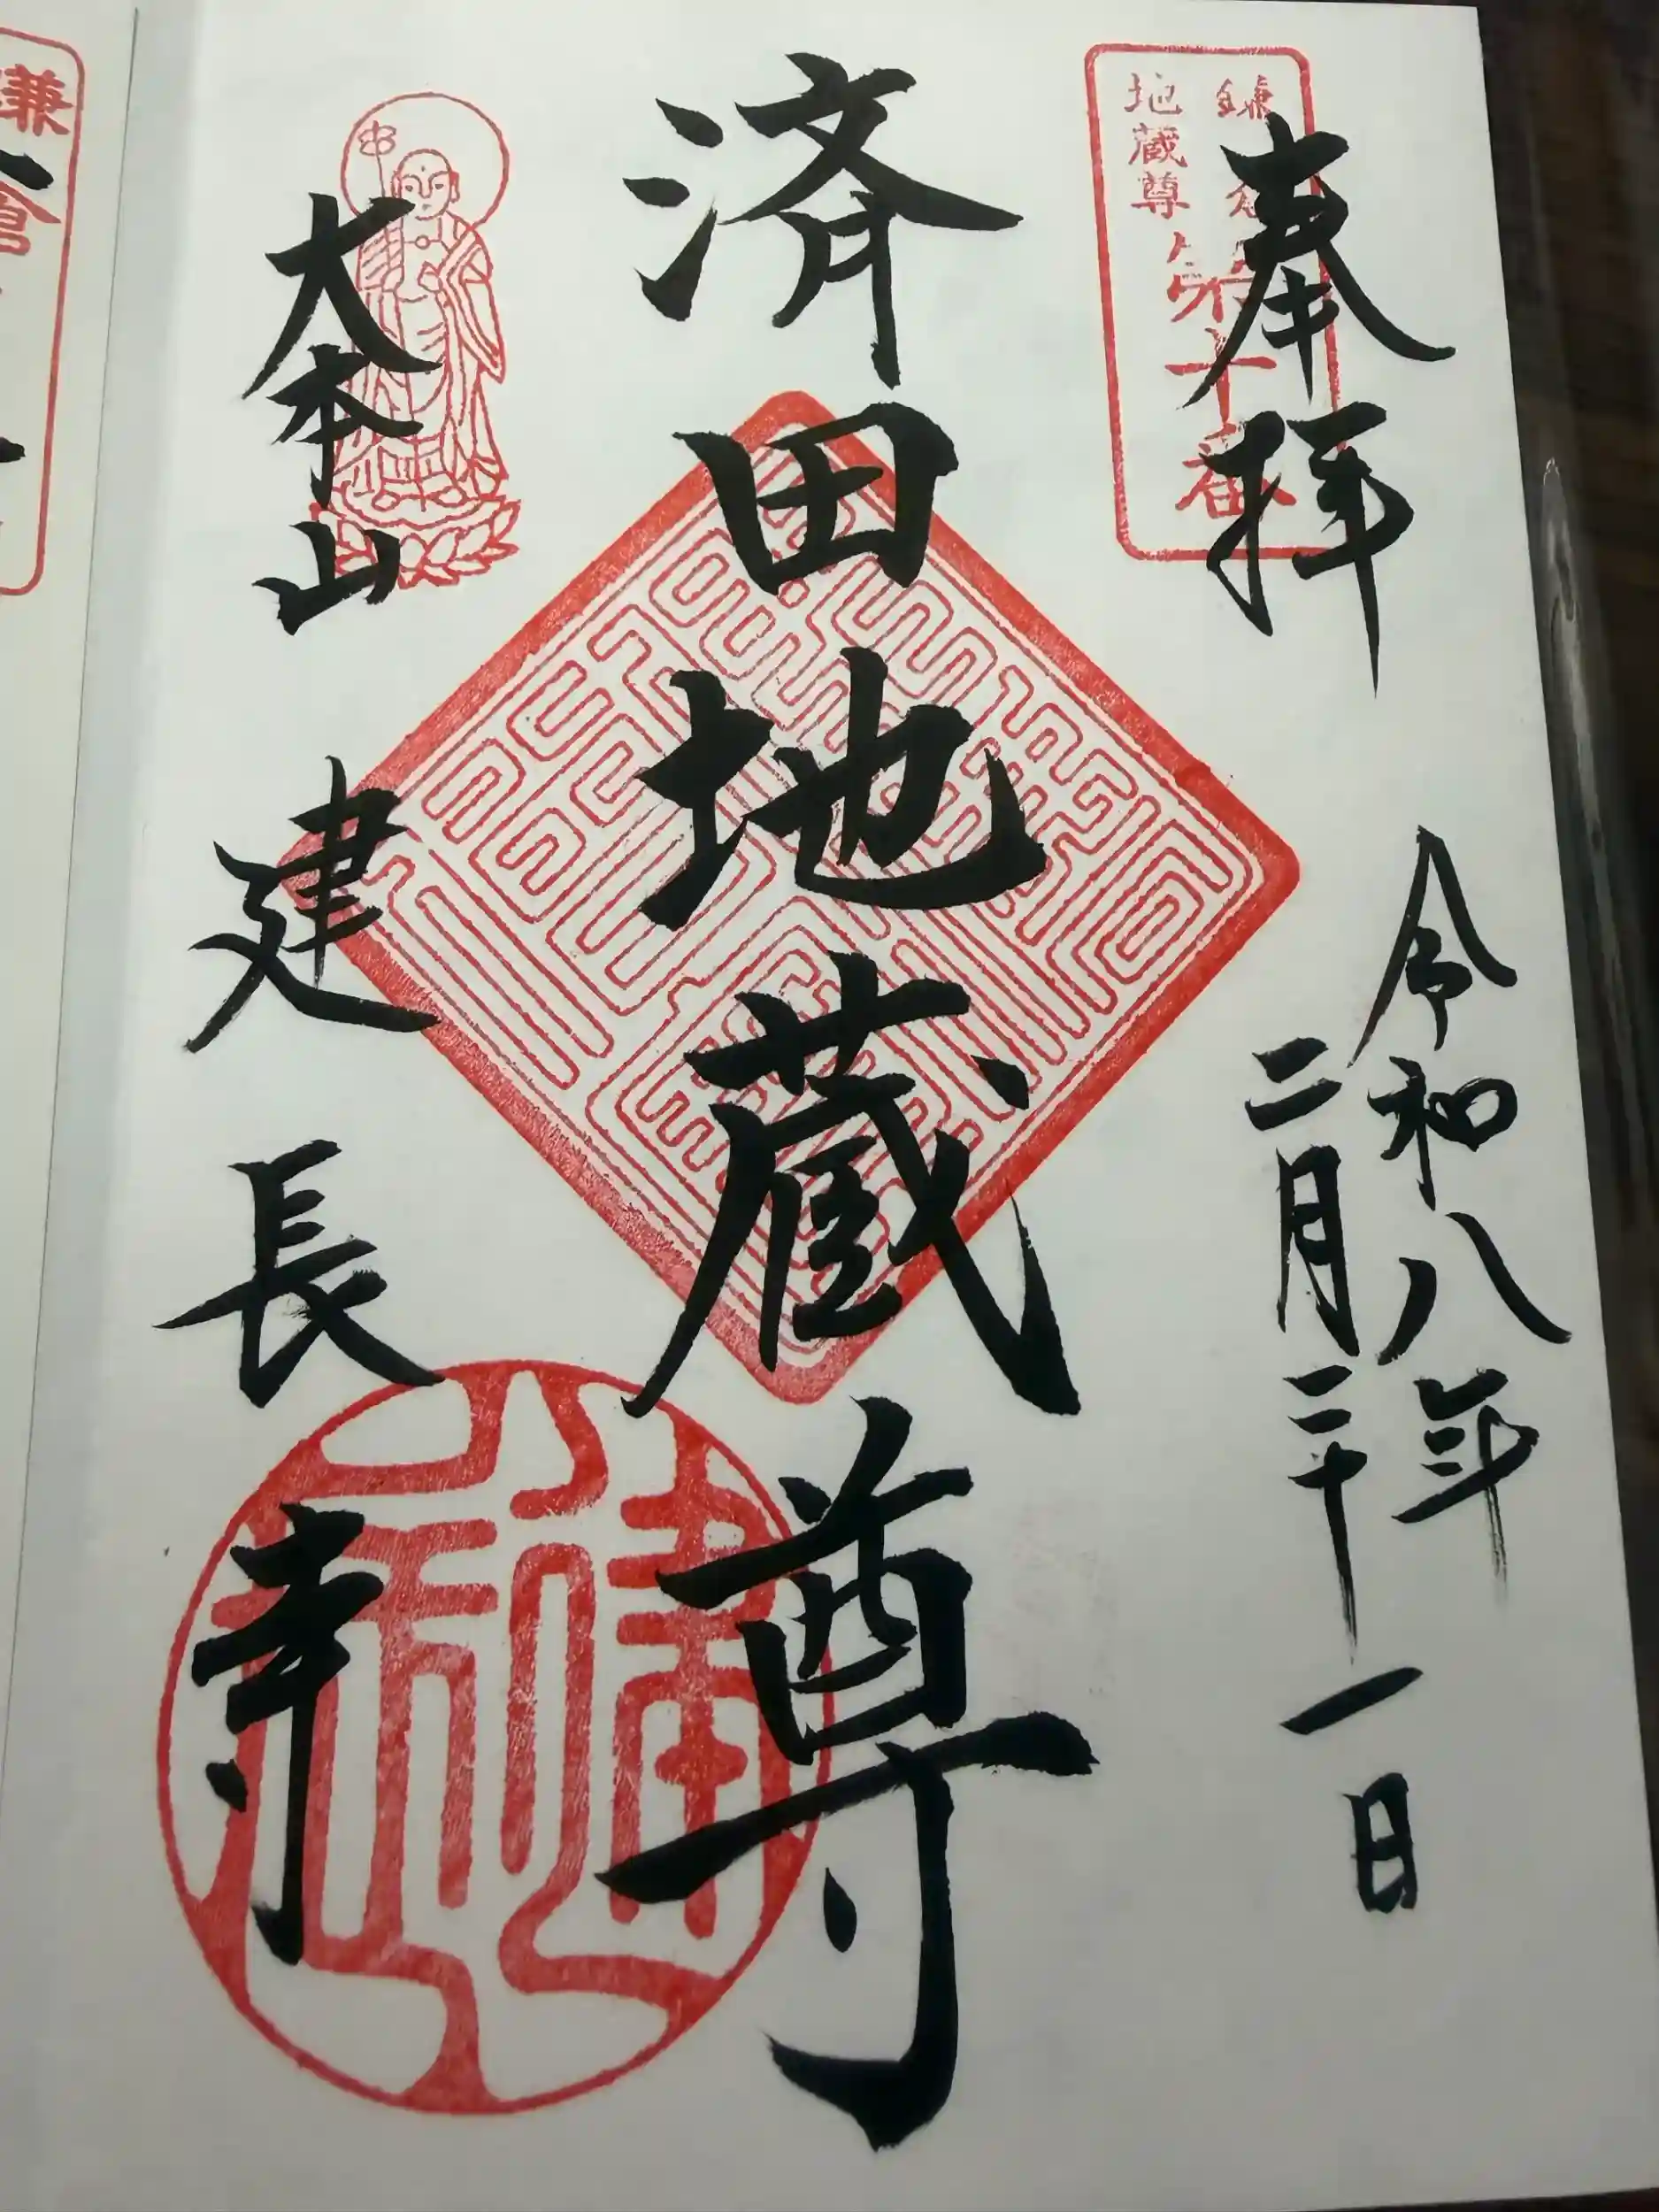 奉拝
鎌倉
地蔵尊
第十番
令和八年
二月二十一日
済田地蔵尊
大本山
建長寺
鎌倉